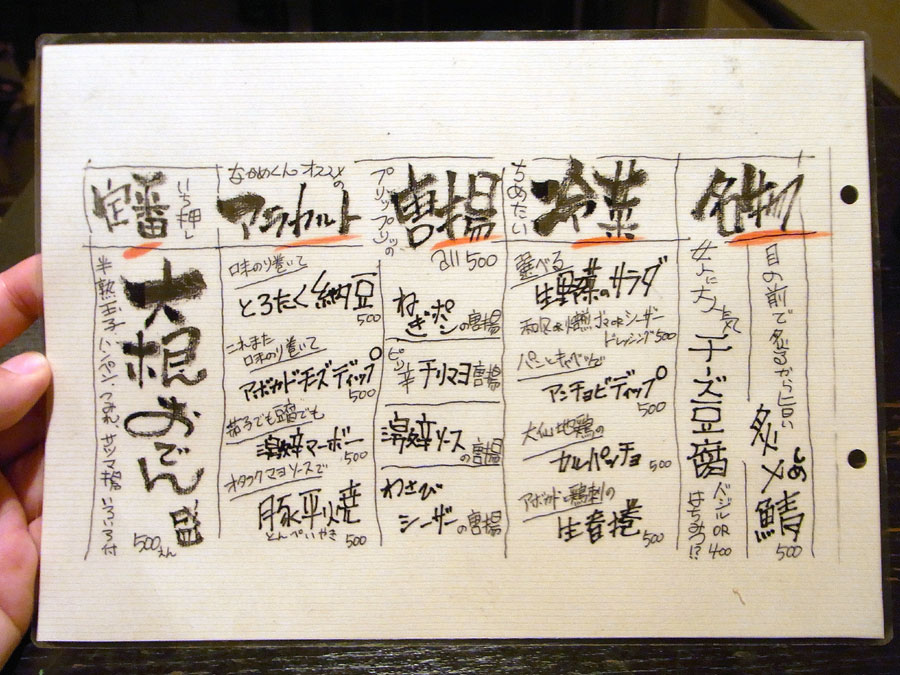 名物
目の前で炙るから旨い
炙〆鯖
しめ
500
女人に大人気
チーズ豆腐
バジル OR
はちみつ!?
400
つめたい
冷菜
選べる
生野菜のサラダ
和風 or 燻製ゴマ or シーザー
ドレッシング500
パンとキャベツで
アンチョビディップ
500
大仙地鶏の
カルパッチョ
500
アボカドと鶏刺の
生春捲
500
プリップリッの
唐揚
all 500
ねぎポンの唐揚
ピリ辛チリマヨ唐揚
激辛ソースの唐揚
わさび
シーザーの唐揚
なかめくんオススメの
アラカルト
口味のり巻いて
とろたく納豆
500
これまた
口味のり巻いて
アボカドチーズディップ
500
茄子でも豆腐でも
激辛マーボー
500
オタフクマヨソースで
豚平焼
とんぺいやき
500
いち押し
定番
大根おでん
500えん
半熟玉子、ハンペン、つみれ、サツマ揚、いろいろ付